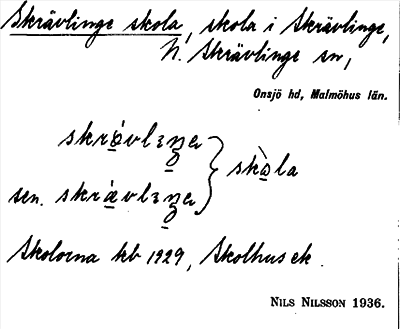 Skrävlinge skola, skola i Skrävlinge,
N. Skrävlinge sn,
Onsjö hd, Malmöhus län.
skola
sen.
Skolorna kb 1929, Skolhus ek.
NILS NILSSON 1936.